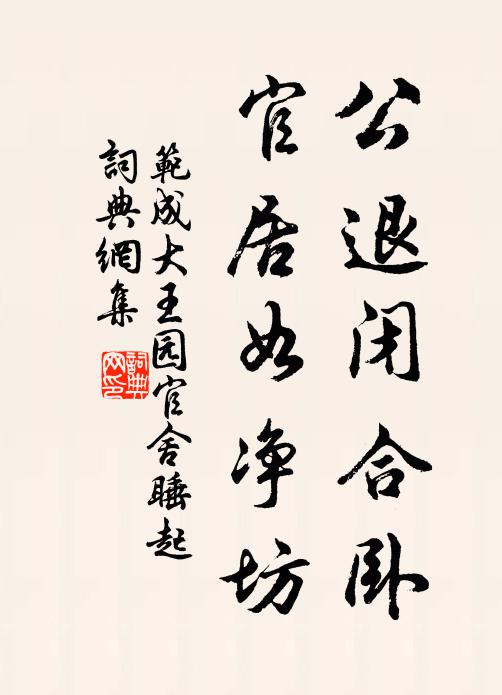 公退闭合卧
官居如净坊
範成大王园官舍睡起
詞典網集
詞典
网印